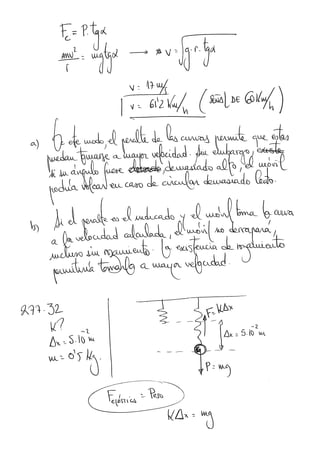 Fc = P·tgα
mv²/r = mg tgα → v = √g·r·tgα
v = 17 m/s
v = 61'2 Km/h (SEÑAL DE 60 Km/h)
a) De este modo, el peralte de las curvas permite que éstas
puedan tomarse a mayor velocidad. Sin embargo,
si su ángulo fuese demasiado alto, el móvil
podría volcar en caso de circular demasiado lento.
b) Si el peralte es el indicado y el móvil toma la curva
a la velocidad calculada, el móvil no derrapará,
incluso sin rozamiento. La existencia de rozamiento
permitiría tomarla a mayor velocidad.
277.32
K?
Δx = 5·10⁻² m
m = 0'5 Kg.
F = KΔx
Δx = 5·10⁻² m
P = mg
Felástica = Peso
KΔx = mg